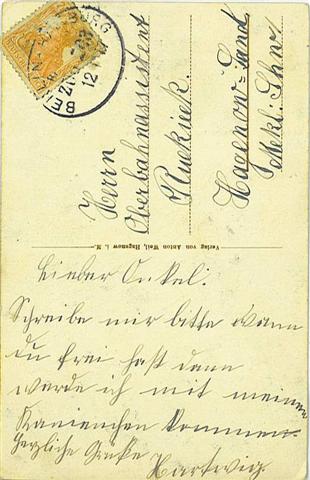 Herrn
Oberbahnassistent
Hagenow-Land
Meckl. Schw.
Verlag von Anton Weli, Hagenow i. M.
Lieber Onkel.
Schreibe mir bitte wann
du frei hast dann
werde ich mit meinen
Kanienchen kommen.
Herzliche Grüße
Hartwig.